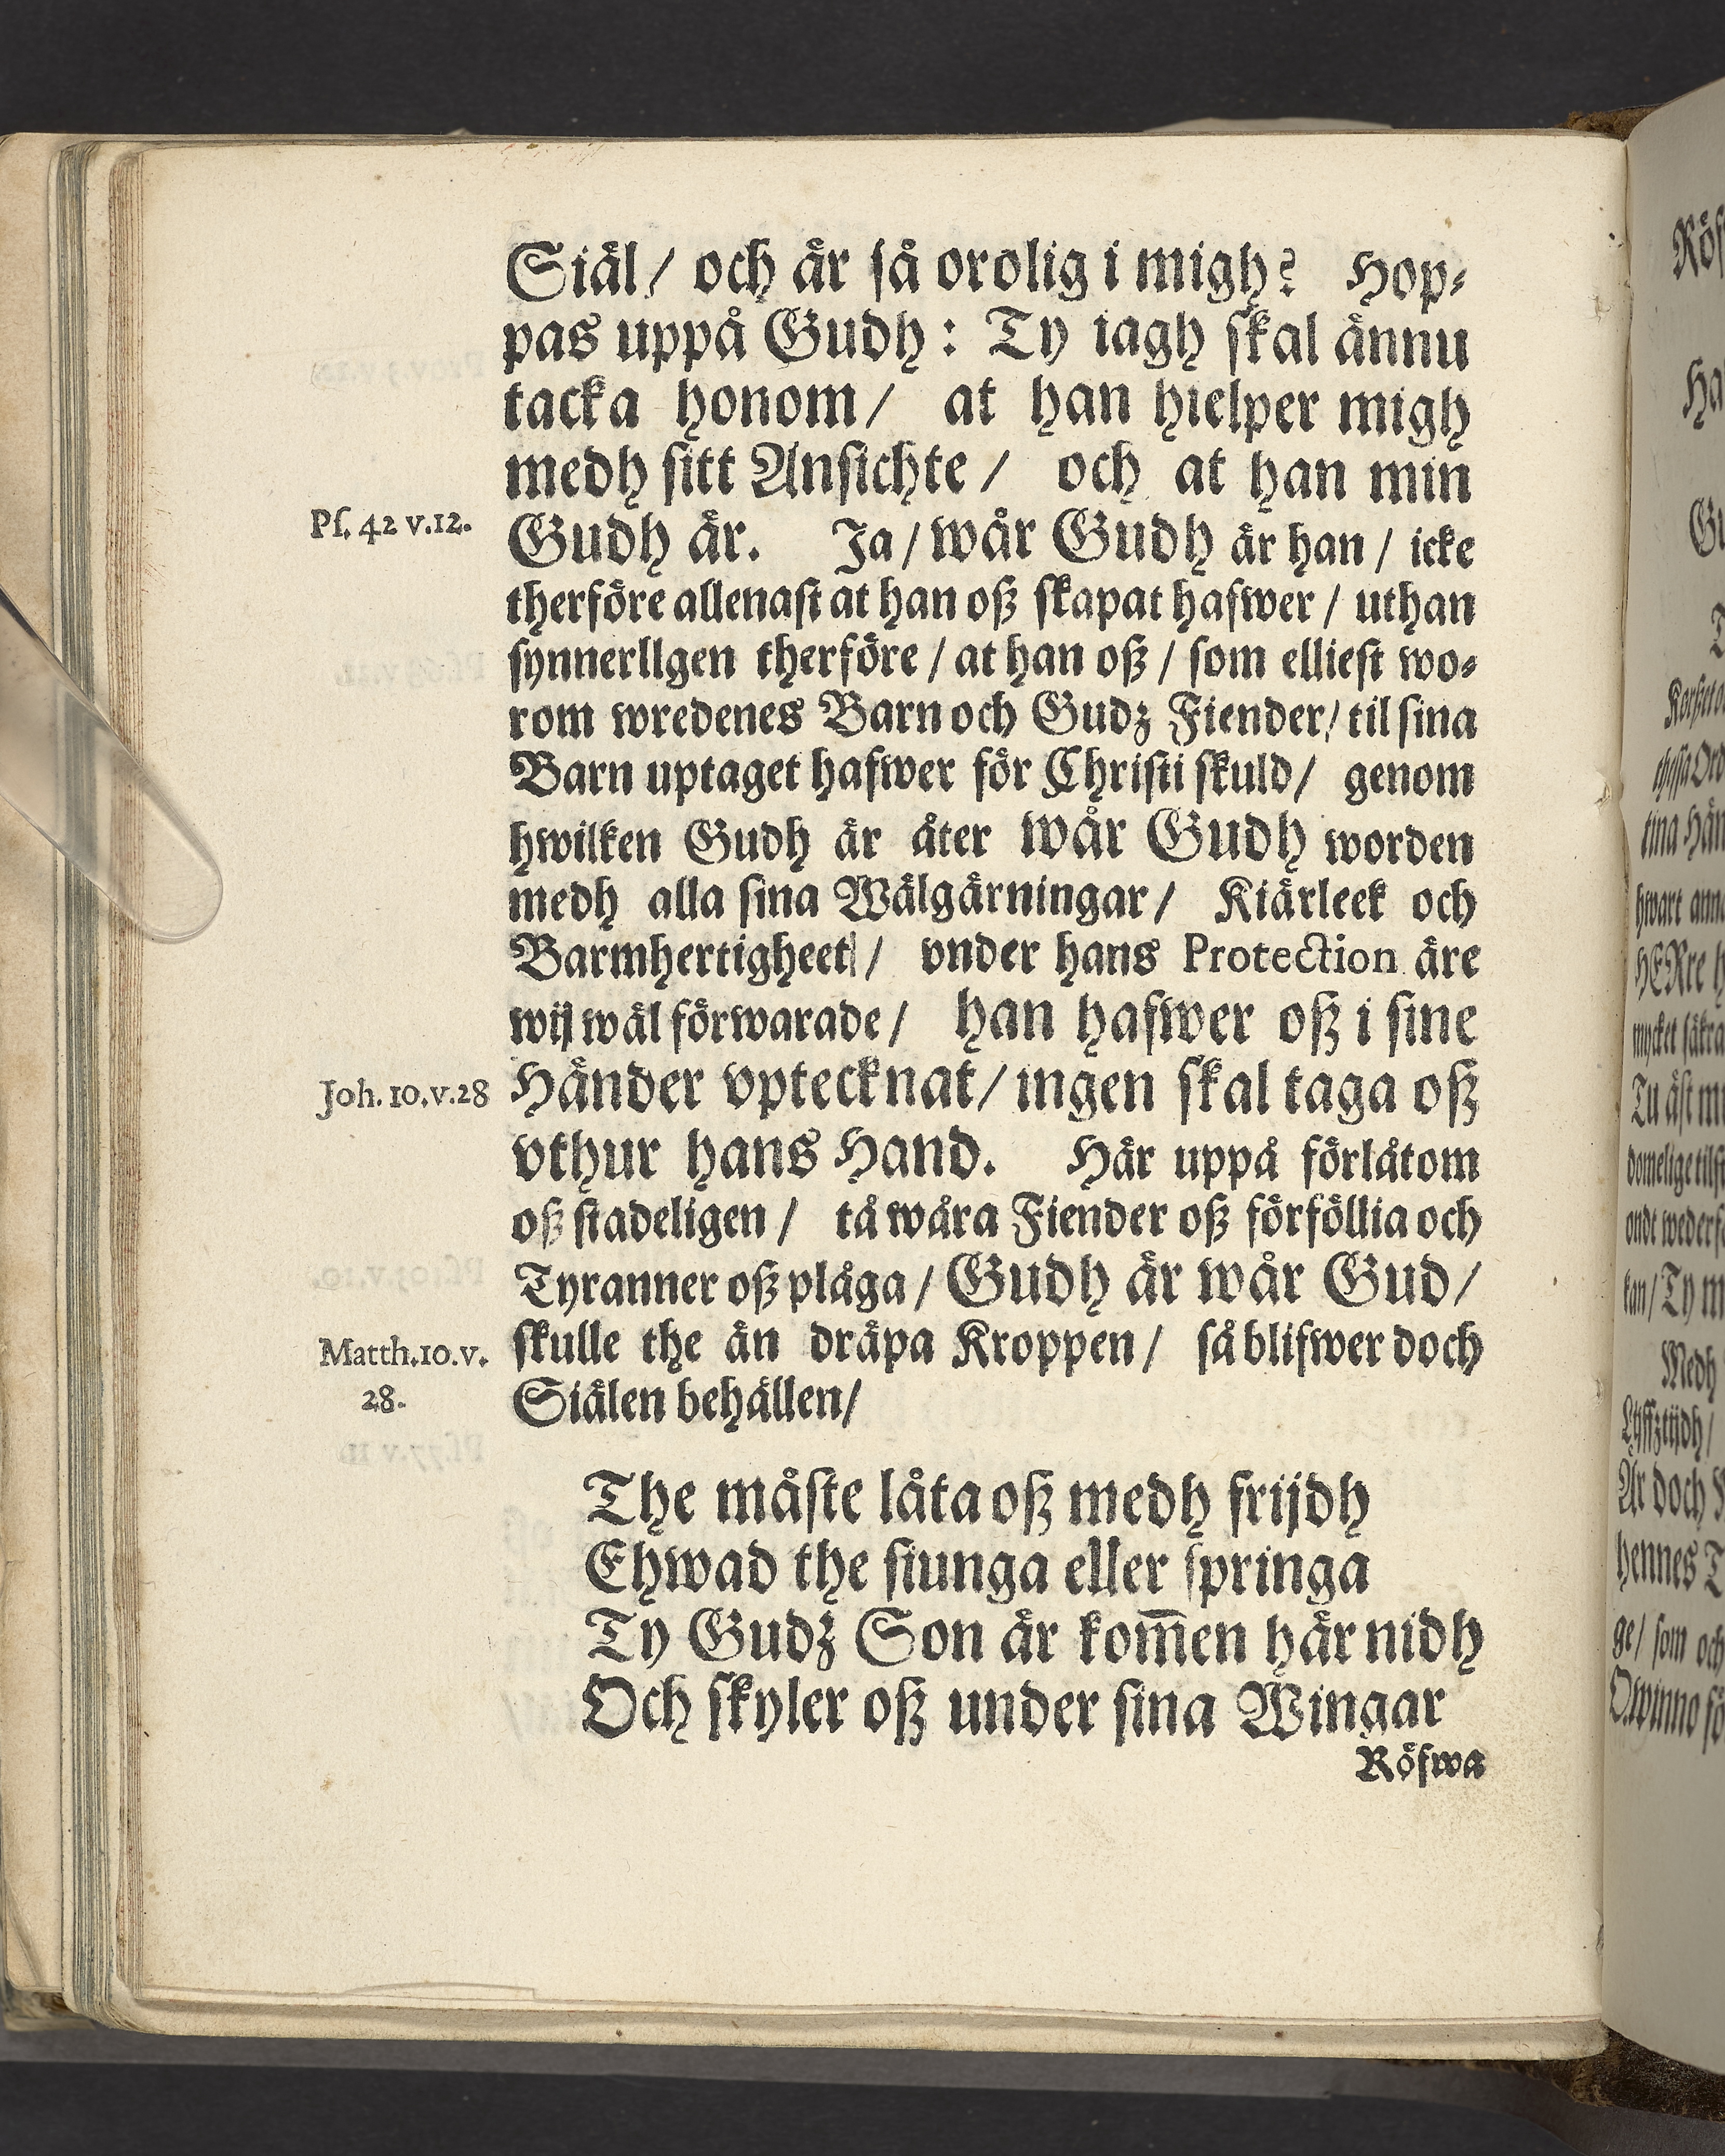 Siäl/ och är så orolig i migh? Hop-
pas uppå Gudh: Ty iagh skal ännu
tacka honom/ at han hielper migh
medh sitt Ansichte/ och at han min
Ps. 42 v.12.
Gudh är. Ja/ wår Gudh är han/ icke
therföre allenast at han oß skapat hafwer/ uthan
synnerllgen therföre/ at han oß/ som elliest wo-
rom wredenes Barn och Gudz Fiender/ til sina
Barn uptaget hafwer för Christi skuld/ genom
hwilken Gudh är åter wår Gudh worden
medh alla sina Wälgärningar/ Kiärleek och
Barmhertigheet/ vnder hans Protection äre
wij wäl förwarade/ han hafwer oß i sine
Joh. 10.v.28
Händer vptecknat/ ingen skal taga oß
vthur hans Hand. Här uppå förlåtom
oß stadeligen/ tå wåra Fiender oß förföllia och
Tyranner oß plåga/ Gudh är wår Gud/
Matth.10.v.
28.
skulle the än dräpa Kroppen/ så blifwer doch
Siälen behällen/
The måste låta oß medh frijdh
Ehwad the siunga eller springa
Ty Gudz Son är kom̅en här nidh
Och skyler oß under sina Wingar
Röfwa